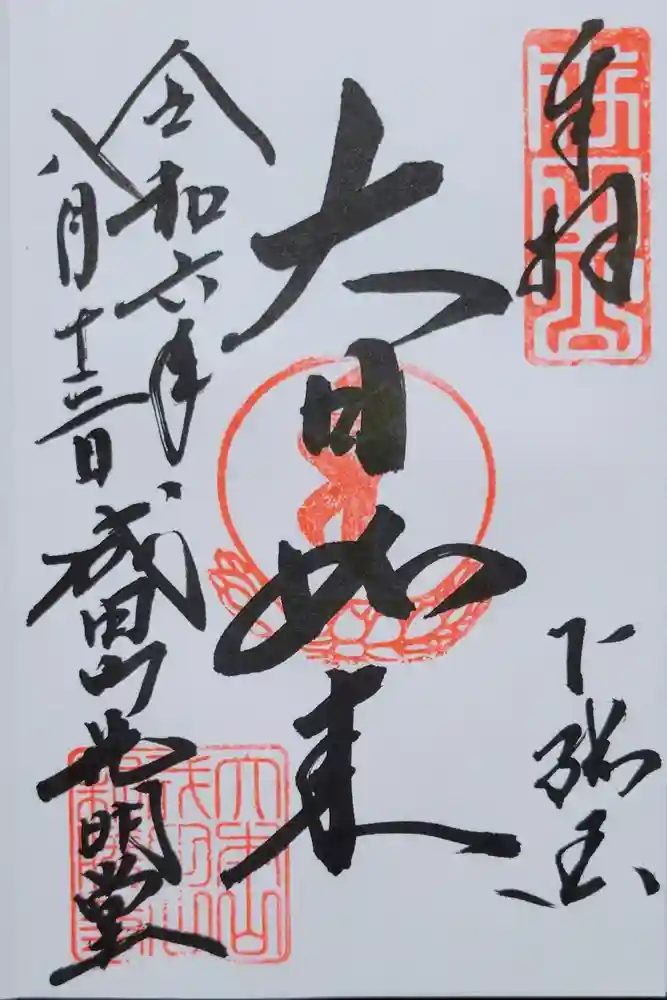 奉拝
下総国
大日如来
令和六年
八月十三日
成田山光明堂